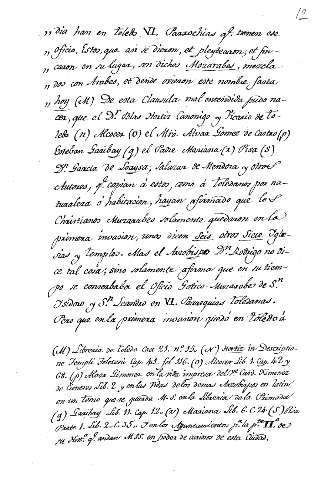 12
„ dia han en toledo VI. Parrochias qe. tienen ese
„ oficio, Estos, que asi se dicen, et pleytearon, et fin
„ caron en su lugar, son dichos Mozarabes, mezcla
„ dos con Arabes, et dende ovieron este nombre fasta
„ hoy (M) De esta Clausula mal entendida pudo na-
cer, que el Dr. Blas Hortiz Canonigo y Vicario de to-
ledo (n) Alcocer (o) el Mtro. Alvar Gomez de Castro (p)
Esteban Garibay (q) el Padre Mariana (r) Pisa (S)
Dn. Garcia de Loaysa, Salazar de Mendoza, y otros
Autores, qe. copian á estos, como á toledanos por na-
turaleza ó habitacion, hayan afirmado que los
Christianos Muzarabes solamente quedaron en la
primera invasion, unos dicen Seis, otros Siete Igle-
sias y templos. Mas el Arzobispo Dn. Rodrigo no di-
ce tal cosa; sino solamente afirma que en su tiem-
po se conservaba el Oficio Gotico Muzarabe de Sn.
Isidoro y Sn. Leandro en VI. Parroquias toledanas.
Pero que en la primera invasion quedó en tolédo á
(M) Libreria de Toledo Cax. 23. nº. 15. (N) Hortiz in Descriptio-
ne Templi Toletani Cap. 43. fol. 116. (o) Alcocer Lib. 1. Cap. 42. y
(p) Alvar Gomez en la vida impresa del Sr. Card. Ximenez
de Cisneros Lib. 2. y en las Vidas de los demas Arzobispos en latin
en un tomo que se guarda M.S. en la Libreria de la Primada
(q) Garibay Lib. 11. Cap. 12. (r) Mariana Lib. 6. C. 24. (S) Pisa
Parte 1. Lib. 2. C. 35. Y en los Apuntamientos pa. la pte. IIa. de
su Hista. qe. andan M.SS. en poder de curiosos de esta Ciudad.